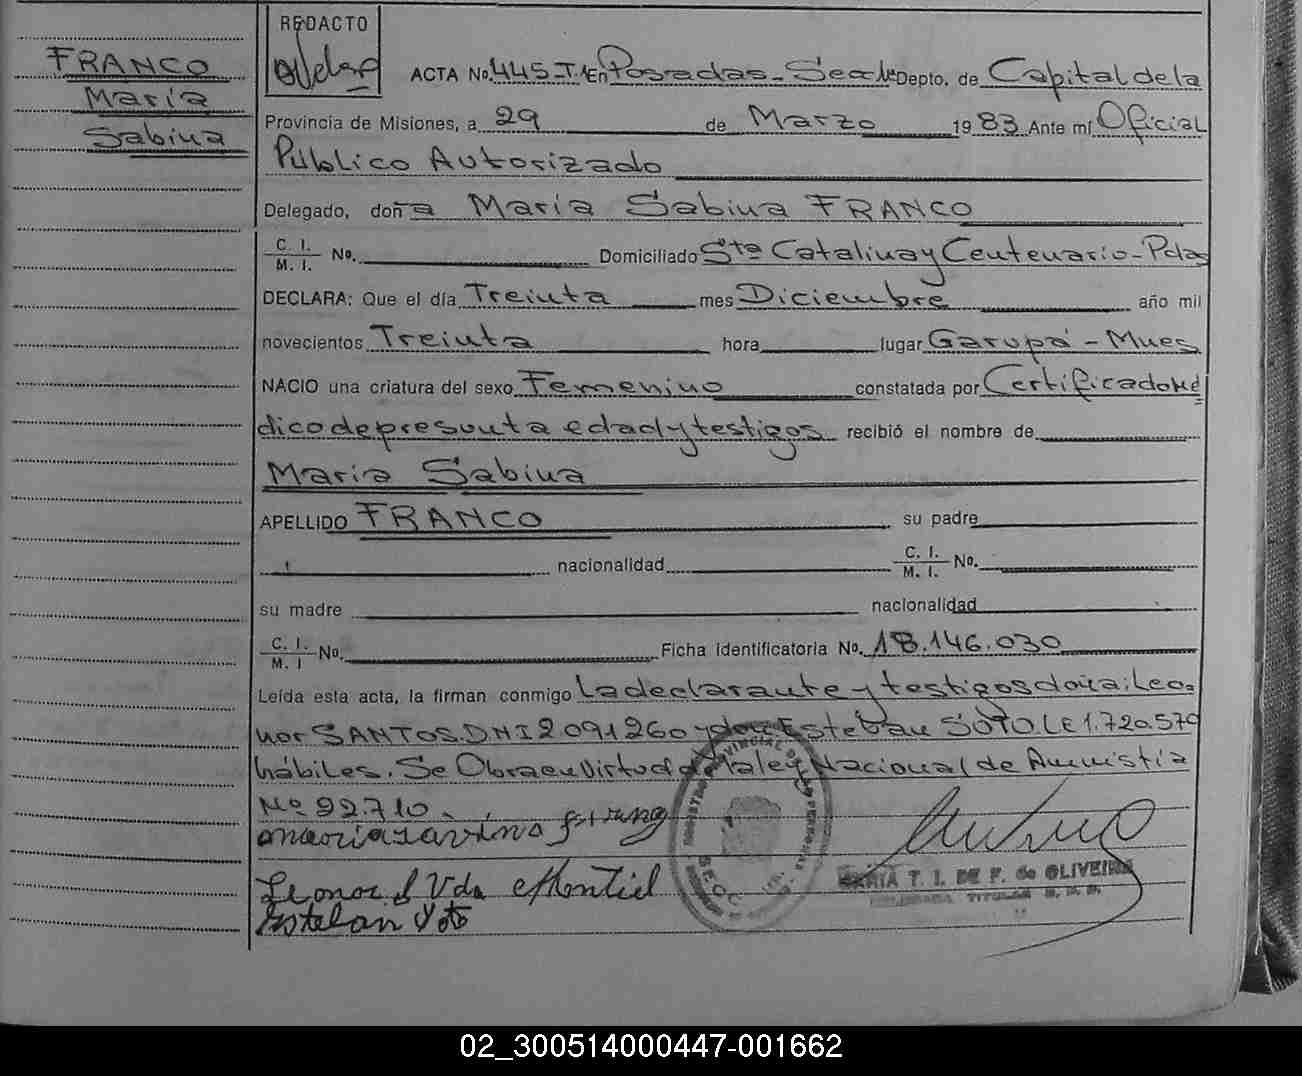 REDACTO
FRANCO
María
Sabina
ACTA No. 445-T.1 En Posadas - Secc 1ª Depto. de Capital de la
Provincia de Misiones, a 29 de Marzo 1983 Ante mí Oficial
Público Autorizado
Delegado, doña María Sabina FRANCO
C. I. M. I. No. Domiciliado Sta Catalina y Centenario - Pdas
DECLARA: Que el día Treinta mes Diciembre año mil
novecientos Treinta hora lugar Garupá - Mnes
NACIO una criatura del sexo Femenino constatada por Certificado Mé
dico de presunta edad y testigos recibió el nombre de
María Sabina
APELLIDO FRANCO su padre
nacionalidad C. I. M. I. No.
su madre nacionalidad
C. I. M. I No. Ficha Identificatoria No. 18.146.030
Leída esta acta, la firman conmigo La declarante y testigos doña: Leo=
nor SANTOS. DNI 2091260 y don Esteban SOTO LE 1.720.579
hábiles. Se Obra en Virtud a la ley Nacional de Amnistía
Nº 22.710.
Leonor S Vda Montiel
Esteban Soto
MARIA T. I. DE F. de OLIVEIRA
DELEGADA TITULAR
02_300514000447-001662